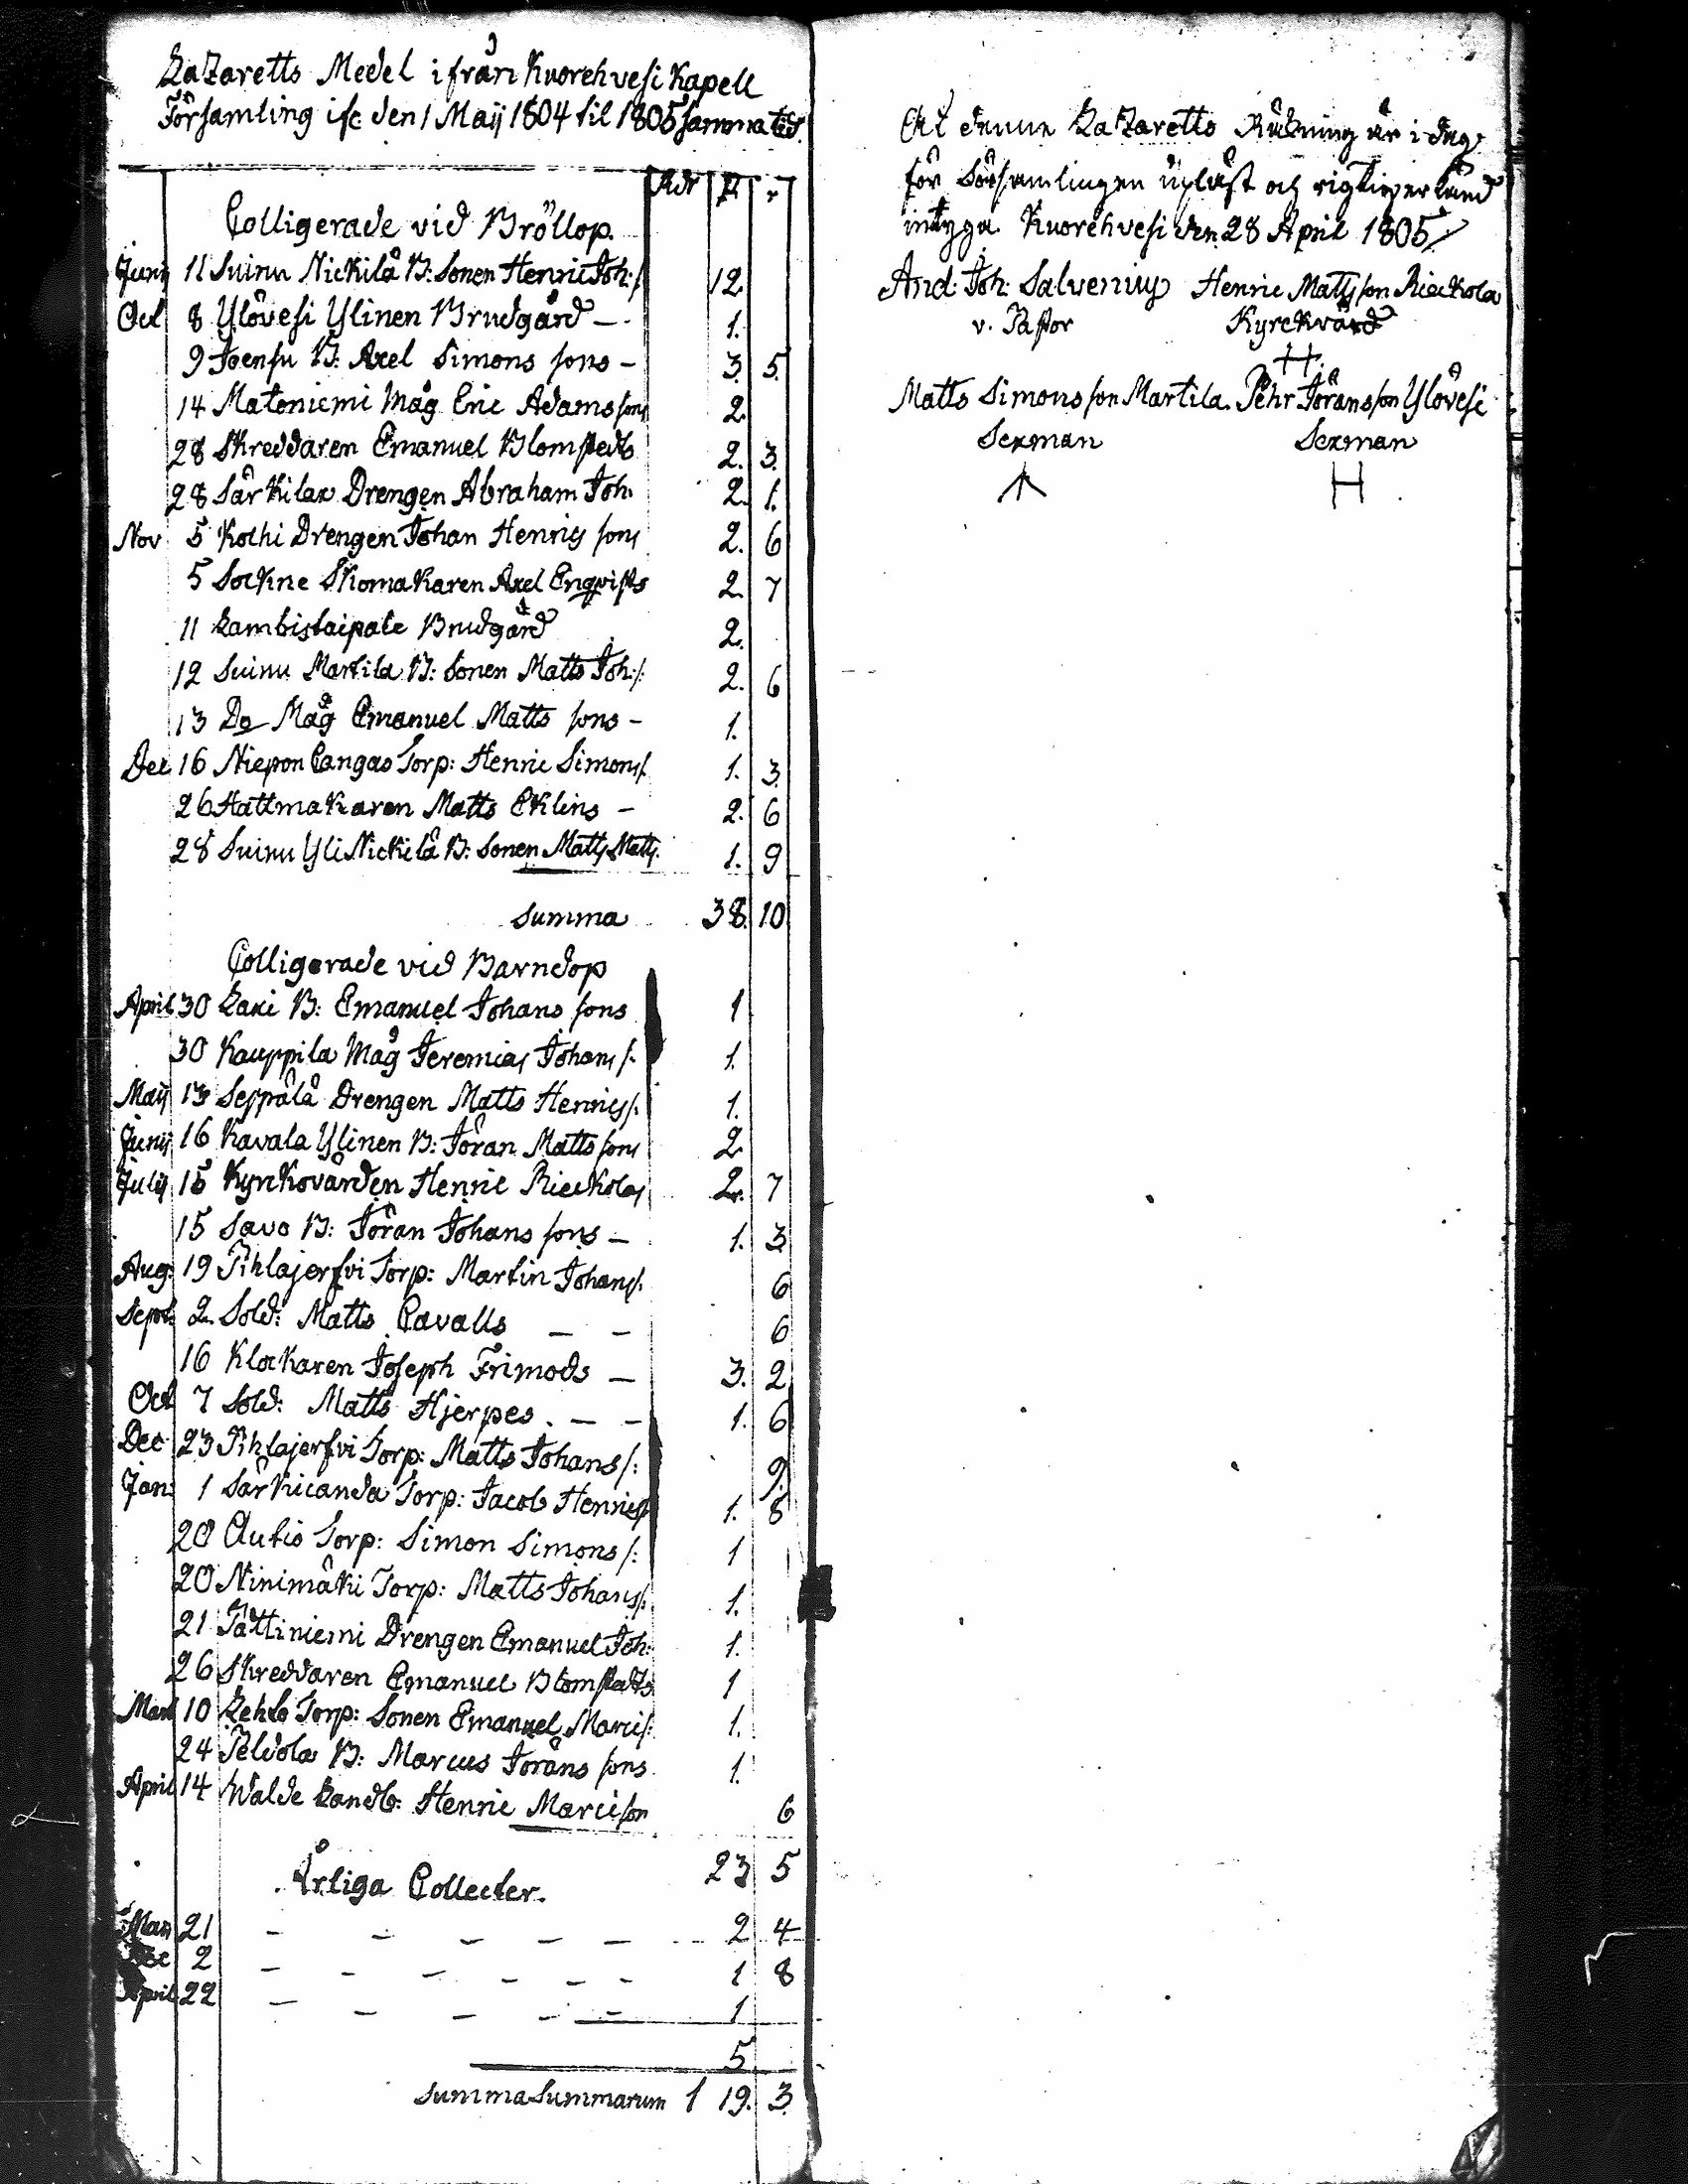 Lazaretts Medel ifrån Kuorehvesi Kapell
Församling ifr. den 1 Maij 1804 til 1805 samma tid.
Rdr ß r
Colligerade vid Bröllop.
Junij 11 Suinu Nickilä B: Sonen Henric Joh:s: 12
Oct 8 Ylövesi Ylinen Brudgård – 1.
9 Joensu B: Axel Simons sons – 3. 5.
14 Matoniemi Måg Eric Adams sons 2
28 Skreddaren Emanuel Blomstedts 2. 3.
28 Särkilax Drengen Abraham Joh: 2. 1.
Nov 5 Kothi Drengen Johan Henrics sons 2. 6
5 Sockne Skomakaren Axel Enqvists 2. 7
11 Lambistaipale Brudgård 2.
12 Suinu Martila B: Sonen Matts Joh:s: 2. 6
13 Do Måg Emanuel Matts sons – 1.
Dec 16 Niepon Cangas Torp: Henric Simons s: 1. 3.
26 Hattmakaren Matts Eklins – 2. 6
28 Suinu Yli Nickilä B: Sonen Matts Matts: 1. 9
Summa 38. 10
Colligerade vid Barndop
April 30 Lari B: Emanuel Johans sons 1
30 Kauppila Måg Jeremias Johans s: 1.
Maij 13 Seppälä Drengen Matts Henrics s: 1.
Junij 16 Kavala Ylinen B: Jöran Matts sons 2
Julij 15 Kyrckovärden Henric Rieckolas 2. 7
15 Savo B: Jöran Johans sons – 1. 3
Aug: 19 Pihlajerfvi Torp: Martin Johans s: 6
Sept: 2 Sold: Matts Cavalls – – 6
16 Klockaren Joseph Frimods – 3. 2
Oct 7 Sold: Matts Hjerpes. – – 1. 6
Dec 23 Pihlajerfvi Torp: Matts Johans s: 9.
Jan: 1 Särkicanda Torp: Jacob Henrics s: 1. 8
20 Autio Torp: Simon Simons s: 1
20 Ninimäki Torp: Matts Johans s: 1.
21 Tättiniemi Drengen Emanuel Joh: 1.
26 Skreddaren Emanuel Blomstedts 1
Mart 10 Torp: Sonen Emanuel Marci s: 1.
24 Peldola B: Marcus Jörans sons 1.
April 14 Walde Landb: Henric Marci son 6
23 5
Årliga Collecter.
Maij 21 – – – – – 2 4
Dec 2 – – – – – – 1 8
April 22 – – – – – 1
5
Summa Summarum 1 19. 3.
At denna Lazaretts Räkning är i dag
för Församlingen upläst och rigtig erkänd
intyga. Kuorehvesi den 28 April 1805
And: Joh: Salvenius Henric Matts son Rieckola
v. Pastor Kyrckvärd
Matts Simons son Martila. Pehr Jörans son Ylövesi
Sexman Sexman
H